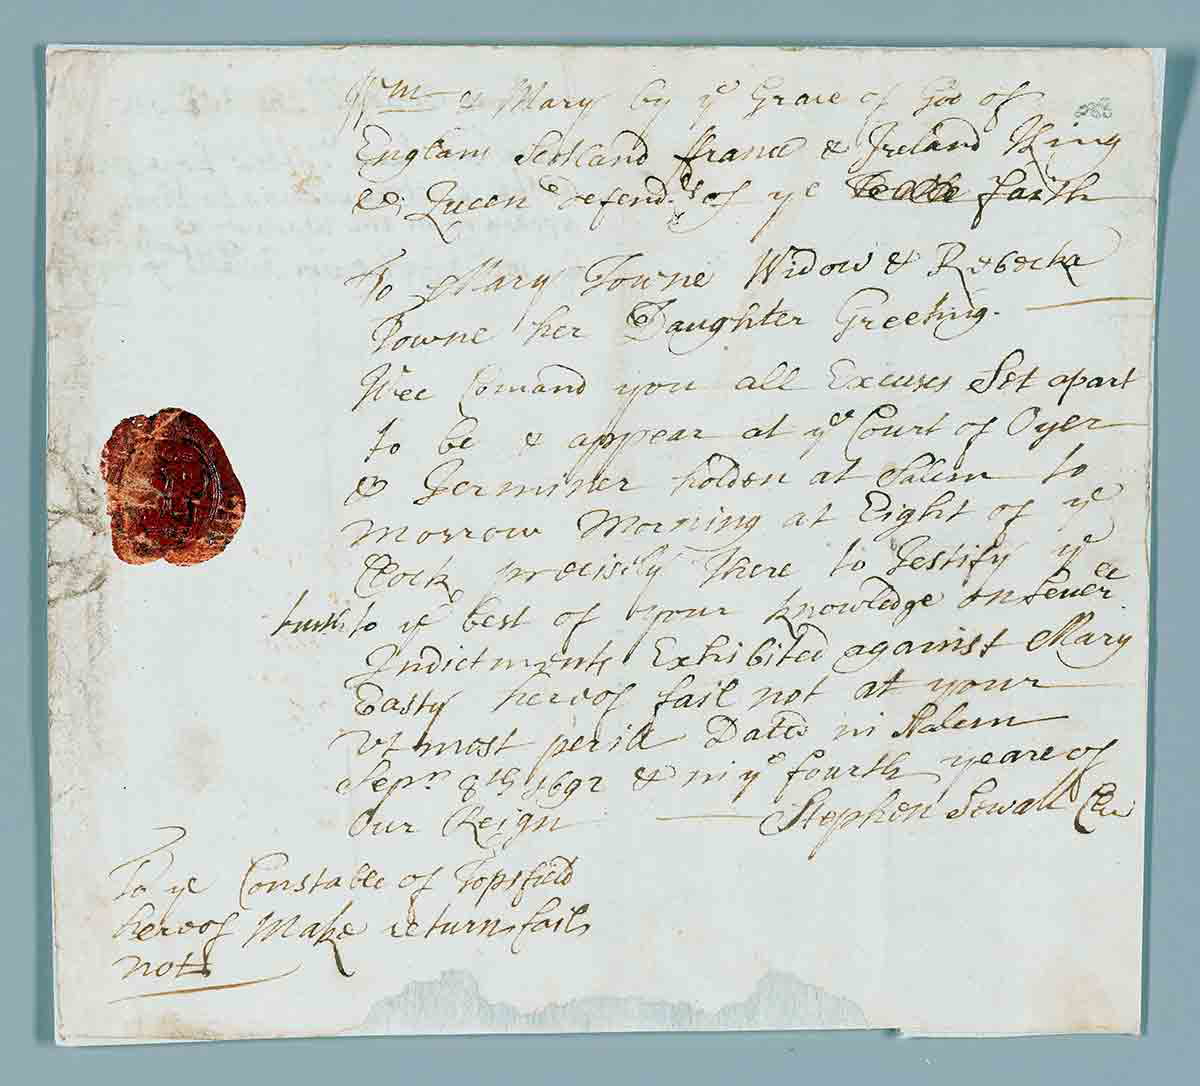 Wm & Mary by ye Grace of God of
England Scotland france & Ireland King
& Queen defendrs of ye faith
To Mary Towne Widow & Rebecka
Towne her Daughter Greeting.
Wee Comand you all Excuses Set apart
to be & appear at ye Court of Oyer
& Terminer holden at Salem to
morrow Morning at Eight of ye
Clock precisely there to Testify ye
truth to ye best of your knowledge on sever
Indictments Exhibited against Mary
Easty hereof fail not at your
Utmost perill Dated in Salem
Sepr 8th 1692 & in ye fourth yeare of
Our Reign Stephen Sewall Cler
To ye Constable of Topsfield
hereof Make return fail
not